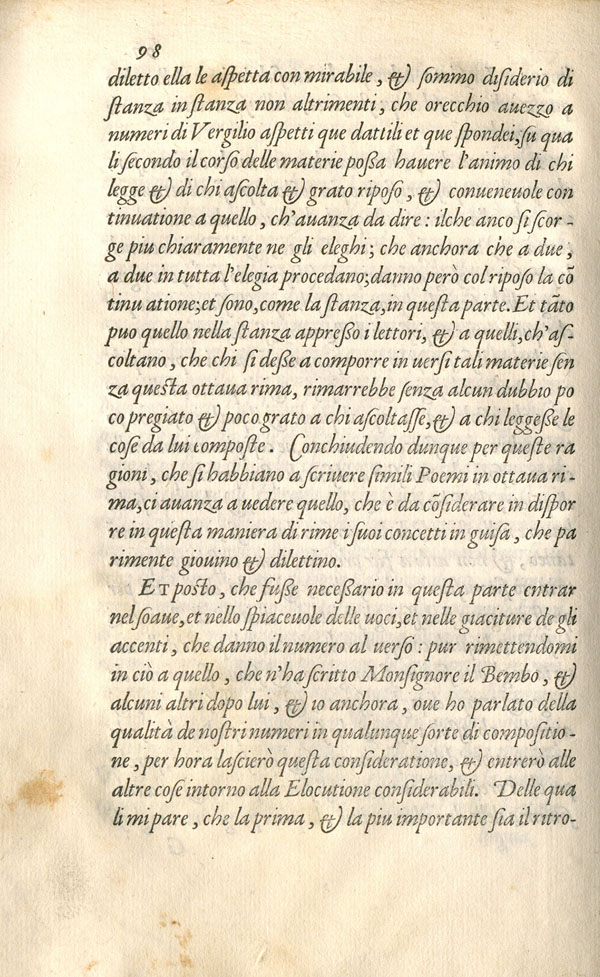 98
diletto ella le aſpetta con mirabile, & ſommo diſiderio di
ſtanza in ſtanza non altrimenti, che orecchio auezzo a
numeri di Vergilio aſpetti que dattili et que ſpondei, ſu qua
li ſecondo il corſo delle materie poſſa hauere l'animo di chi
legge & di chi aſcolta & grato ripoſo, & conueneuole con
tinuatione a quello, ch'auanza da dire: ilche anco ſi ſcor-
ge piu chiaramente ne gli eleghi; che anchora che a due,
a due in tutta l'elegia procedano; danno però col ripoſo la cõ
tinu atione; et ſono, come la ſtanza, in queſta parte. Et tãto
puo quello nella ſtanza appreſſo i lettori, & a quelli, ch'aſ-
coltano, che chi ſi deſſe a comporre in uerſi tali materie ſen
za queſta ottaua rima, rimarrebbe ſenza alcun dubbio po
co pregiato & poco grato a chi aſcoltaſſe, & a chi leggeſſe le
coſe da lui compoſte. Conchiudendo dunque per queſte ra
gioni, che ſi habbiano a ſcriuere ſimili Poemi in ottaua ri-
ma, ci auanza a uedere quello, che è da cõſiderare in diſpor
re in queſta maniera di rime i ſuoi concetti in guiſa, che pa
rimente giouino & dilettino.
ET poſto, che fuſſe neceſſario in queſta parte entrar
nel ſoaue, et nello ſpiaceuole delle uoci, et nelle giaciture de gli
accenti, che danno il numero al uerſo: pur rimettendomi
in ciò a quello, che n'ha ſcritto Monſignore il Bembo, &
alcuni altri dopo lui, & io anchora, oue ho parlato della
qualità de noſtri numeri in qualunque ſorte di compoſitio-
ne, per hora laſcierò queſta conſideratione, & entrerò alle
altre coſe intorno alla Elocutione conſiderabili. Delle qua
li mi pare, che la prima, & la piu importante ſia il ritro-